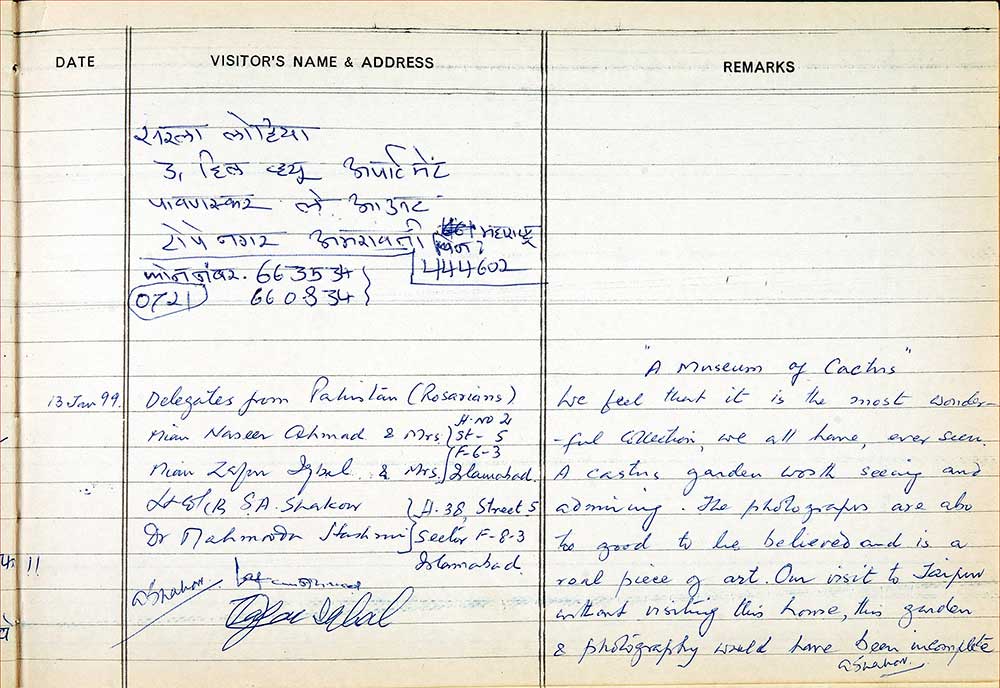 DATE
VISITOR'S NAME & ADDRESS
REMARKS
सरला लोहिया
3, हिल व्ह्यु अपार्टमेंट
पावणस्कर ले आऊट
टोपे नगर अमरावती महाराष्ट्र
पिन
444602
फोन नंबर. 663534
0721 660834
13 Jan 99.
Delegates from Pakistan (Rosarians)
Mian Naseer Ahmad & Mrs.
H. NO 21
St - 5
F-6-3
Mian Zafar Iqbal & Mrs. Islamabad.
S.A. Shakoor H-38, Street-5
Dr Mahmooda Hashmi Sector F-8-3
Islamabad
aShakoor
Zafar Iqbal
"A Museum of Cactus"
We feel that it is the most wonder-
-ful collection, we all have, ever seen.
A castus garden worth seeing and
admiring. The photographs are also
too good to be believed and is a
real piece of art. Our visit to Jaipur
without visiting this house, this garden
& photography would have been incomplete
aShakoor.
!!